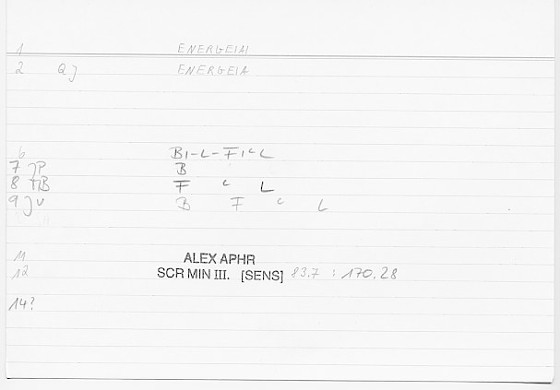 1 ENERGEIAI
2 QJ ENERGEIA
6 BI-L-FICL
7 JP B
8 FB F C L
9 JV B F C L
11 ALEX APHR
12 SCR MIN III. [SENS] 83,7 : 170,28
14?